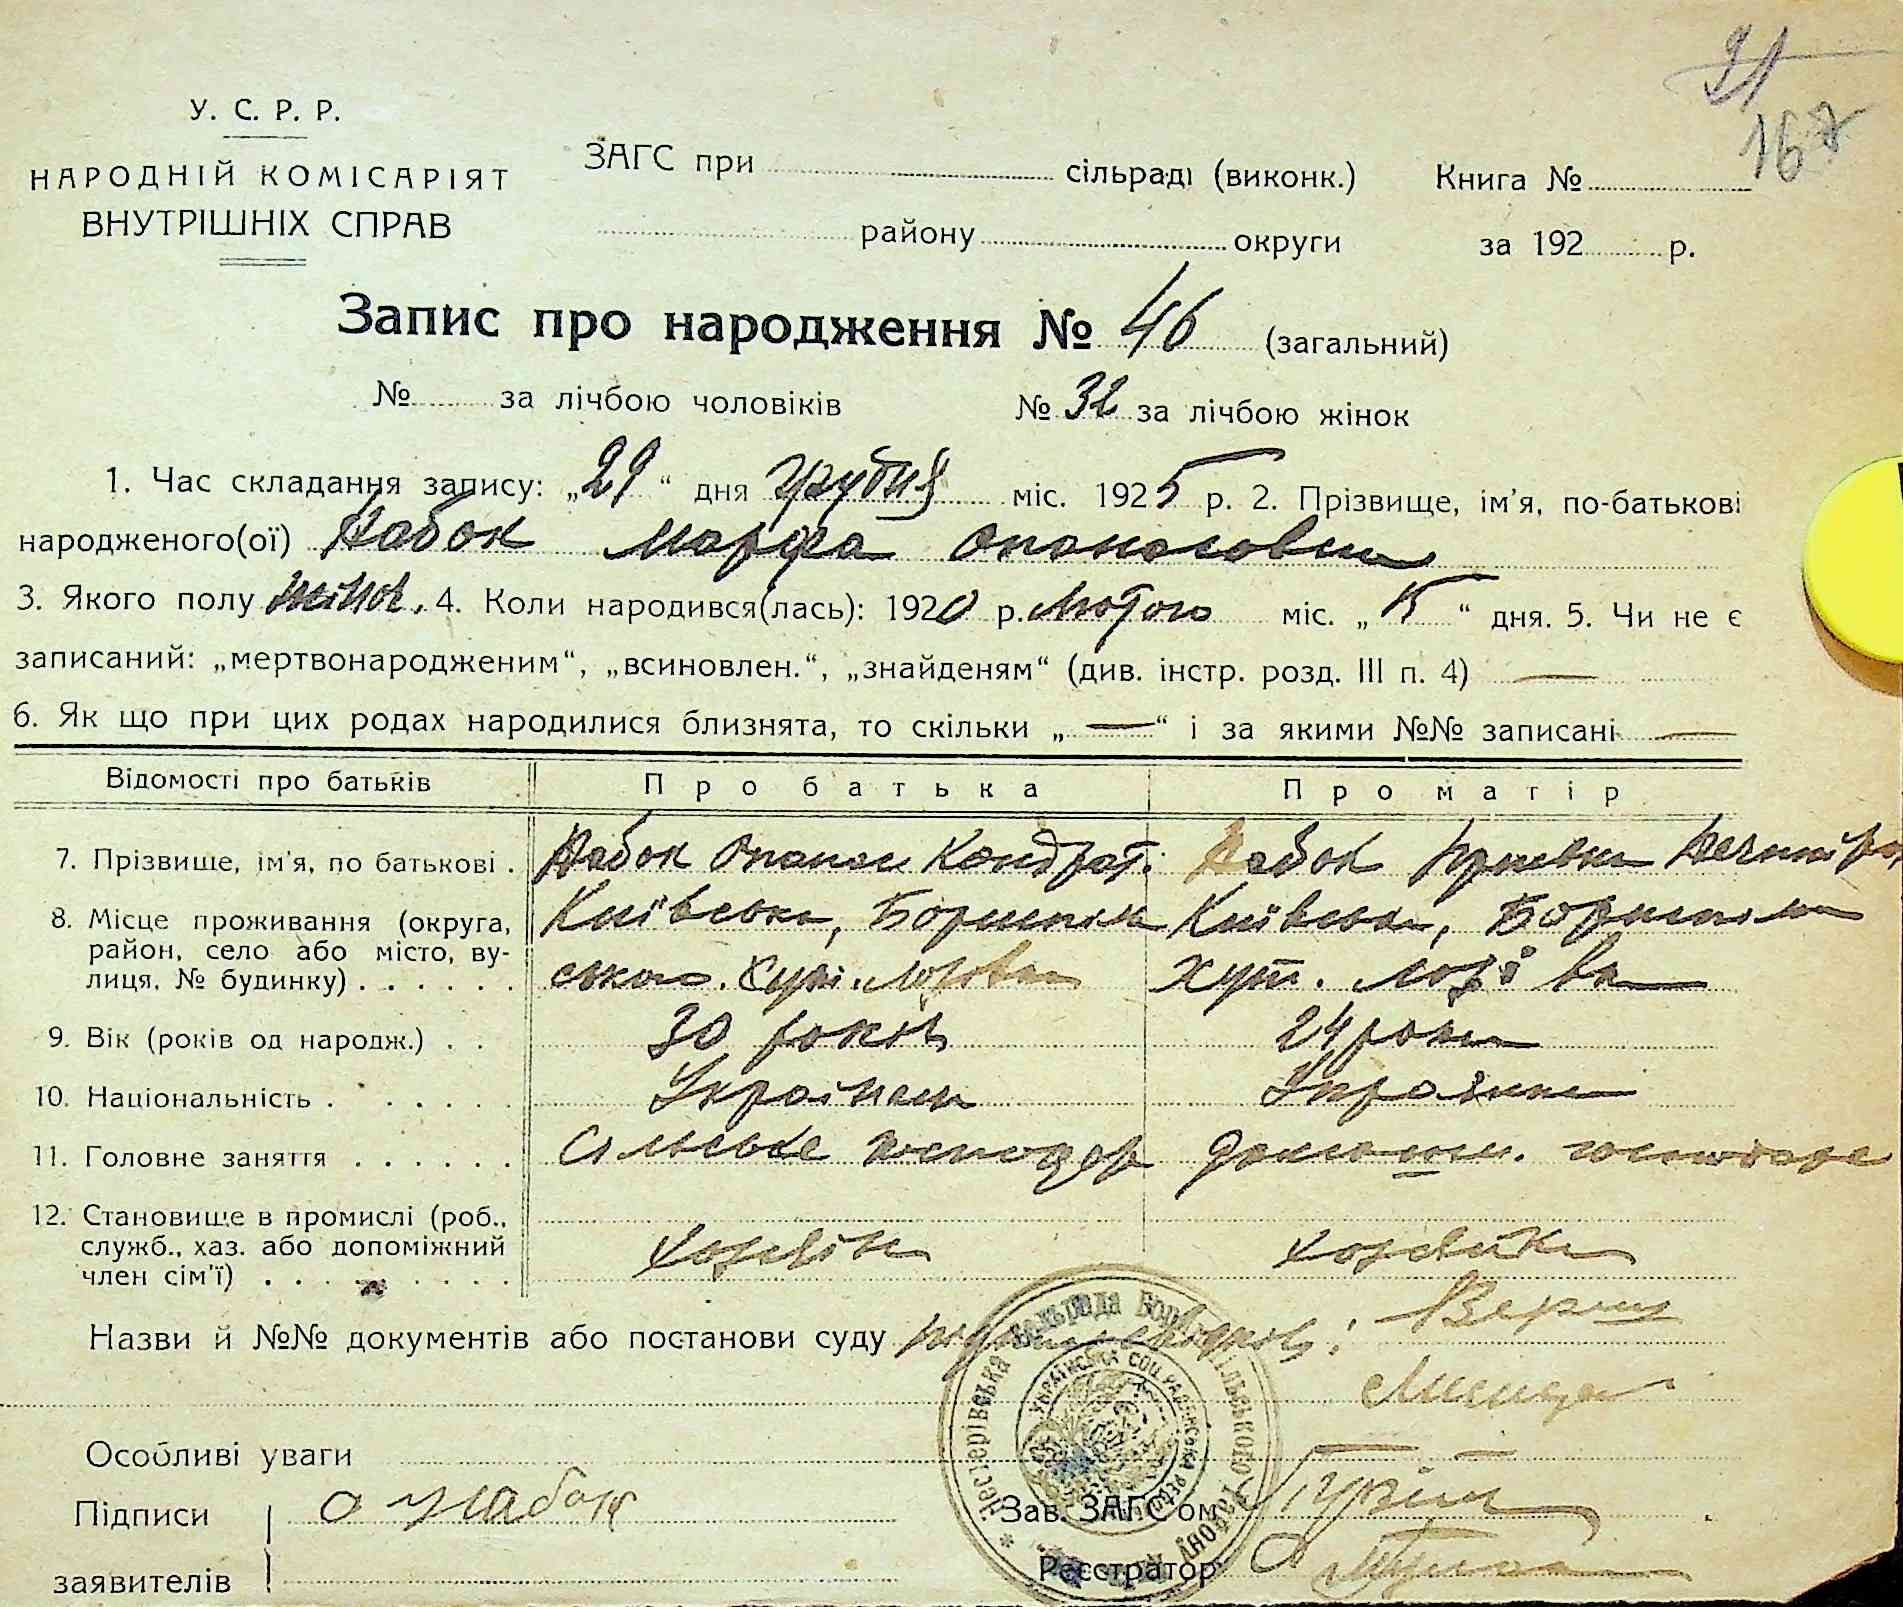 21
167
У. С. Р. Р.
НАРОДНІЙ КОМІСАРІЯТ
ВНУТРІШНІХ СПРАВ
ЗАГС при сільраді (виконк.) Книга №
району округи за 192 р.
Запис про народження № 46 (загальний)
№ за лічбою чоловіків № 32 за лічбою жінок
1. Час складання запису: „29“ дня грудня міс. 1925 р. 2. Прізвище, ім'я, по-батькові
народженого(ої) Набок Марфа Опанасовна
3. Якого полу жіноч. 4. Коли народився(лась): 1920 р. Лютого міс. „15“ дня. 5. Чи не є
записаний: „мертвонародженим“, „всиновлен.“, „знайденям“ (див. інстр. розд. III п. 4) —
6. Як що при цих родах народилися близнята, то скільки „—“ і за якими №№ записані —
Відомості про батьків Про батька Про матір
7. Прізвище, ім'я, по батькові . Набок Опанас Кондрат. Набок
8. Місце проживання (округа, Київська, Бориспіль Київська, Бориспіль
район, село або місто, ву- ського. Хут. Лозовка хут. Лозівка
лиця, № будинку) . . . . . .
9. Вік (років од народж.) . . 30 років 24 роки
10. Національність . . . . . . Українець Українка
11. Головне заняття . . . . . . Сільське господар домашн. господарс
12. Становище в промислі (роб.,
служб., хаз. або допоміжний хозяїн хозяйка
член сім'ї) . . . . . . .
Назви й №№ документів або постанови суду
Особливі уваги
Підписи О Набок Зав. ЗАГС'ом
заявителів Реєстратор
УКРАЇНСЬКА СОЦ. РАДЯНСЬКА